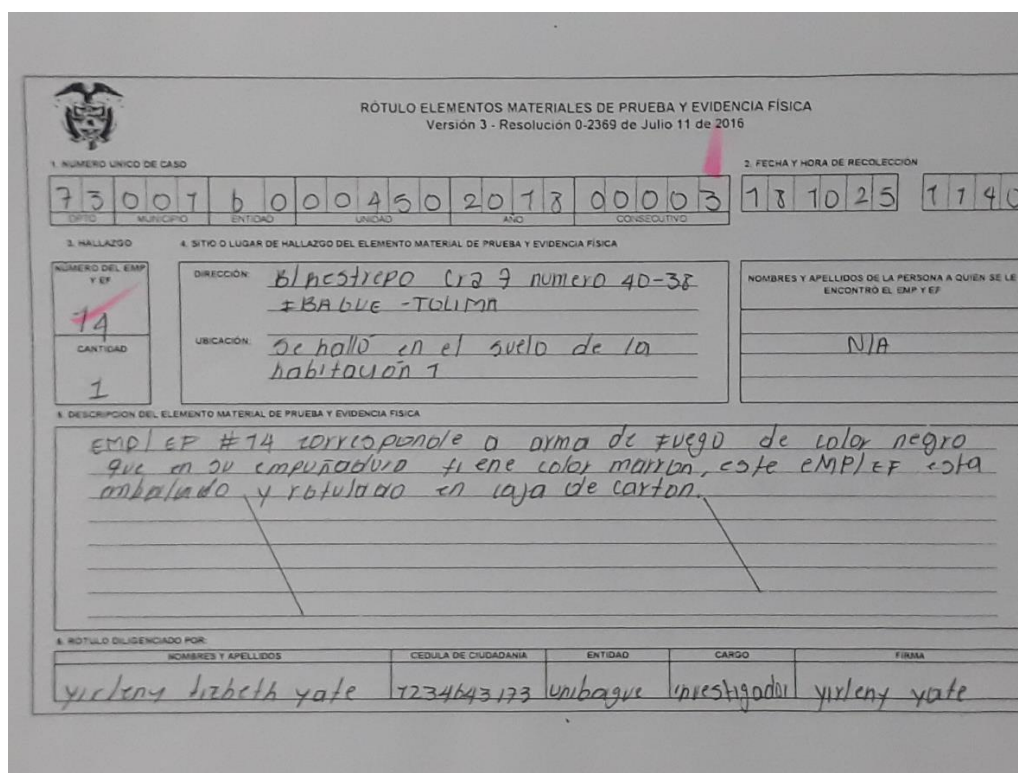 RÓTULO ELEMENTOS MATERIALES DE PRUEBA Y EVIDENCIA FÍSICA
Versión 3 - Resolución 0-2369 de Julio 11 de 2016
1. NUMERO UNICO DE CASO
2. FECHA Y HORA DE RECOLECCIÓN
73 001 60 00450 2018 00003 18 10 25 1140
DPTO MUNICIPIO ENTIDAD UNIDAD AÑO CONSECUTIVO
3. HALLAZGO 4. SITIO O LUGAR DE HALLAZGO DEL ELEMENTO MATERIAL DE PRUEBA Y EVIDENCIA FÍSICA
NÚMERO DEL EMP Y EF
14
CANTIDAD
1
DIRECCIÓN: B/ Restrepo Cra 7 numero 40-38
IBAGUE - TOLIMA
UBICACIÓN: Se halló en el suelo de la
habitación 1
NOMBRES Y APELLIDOS DE LA PERSONA A QUIEN SE LE
ENCONTRÓ EL EMP Y EF
N/A
5. DESCRIPCION DEL ELEMENTO MATERIAL DE PRUEBA Y EVIDENCIA FISICA
EMP/EF #14 corresponde a arma de Fuego de color negro
que en su empuñadura tiene color marron, este EMP/EF esta
embalado y rotulado en caja de carton.
6. ROTULO DILIGENCIADO POR:
NOMBRES Y APELLIDOS CEDULA DE CIUDADANIA ENTIDAD CARGO FIRMA
yirleny lizbeth yate 1234643173 unibague investigador yirleny yate